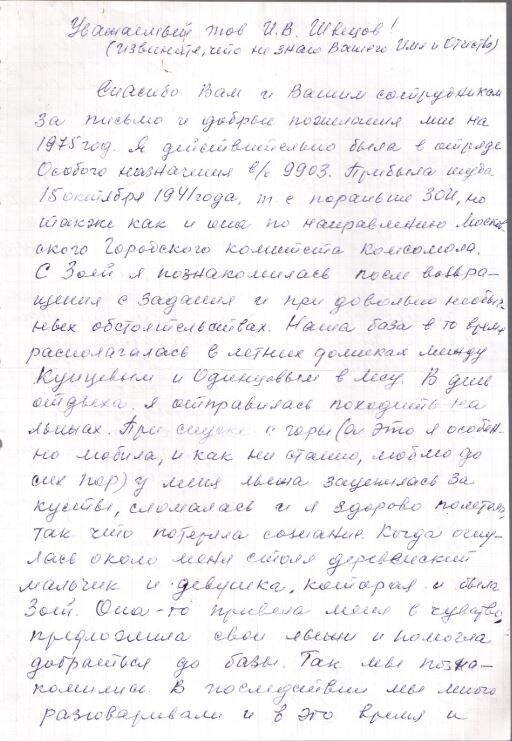 Уважаемый тов И.В. Швецов!
(Извините, что не знаю Вашего Имя и Отчества)
Спасибо Вам и Вашим сотрудникам
за письмо и добрые пожелания мне на
1975 год. Я действительно была в отряде
Особого назначения в/ч 9903. Прибыла туда
15 октября 1941 года, т.е. пораньше Зои, но
также как и она по направлению Москов-
ского Городского комитета комсомола.
С Зоей я познакомилась после возвра-
щения с задания и при довольно необыч-
ных обстоятельствах. Наша база в то время
располагалась в летних домиках между
Кунцевым и Одинцовым в лесу. В дни
отдыха, я отправилась походить на
лыжах. При спуске с горы (а это я особен-
но любила, и как ни странно, люблю до
сих пор) у меня лыжа зацепилась за
кусты, сломалась и я здорово полетела,
так что потеряла сознание. Когда очну-
лась около меня стоял деревенский
мальчик и девушка, которая и была
Зоей. Она-то привела меня в чувство,
предложила свои лыжи и помогла
добраться до базы. Так мы позна-
комились. В последствии мы много
разговаривали и в это время и